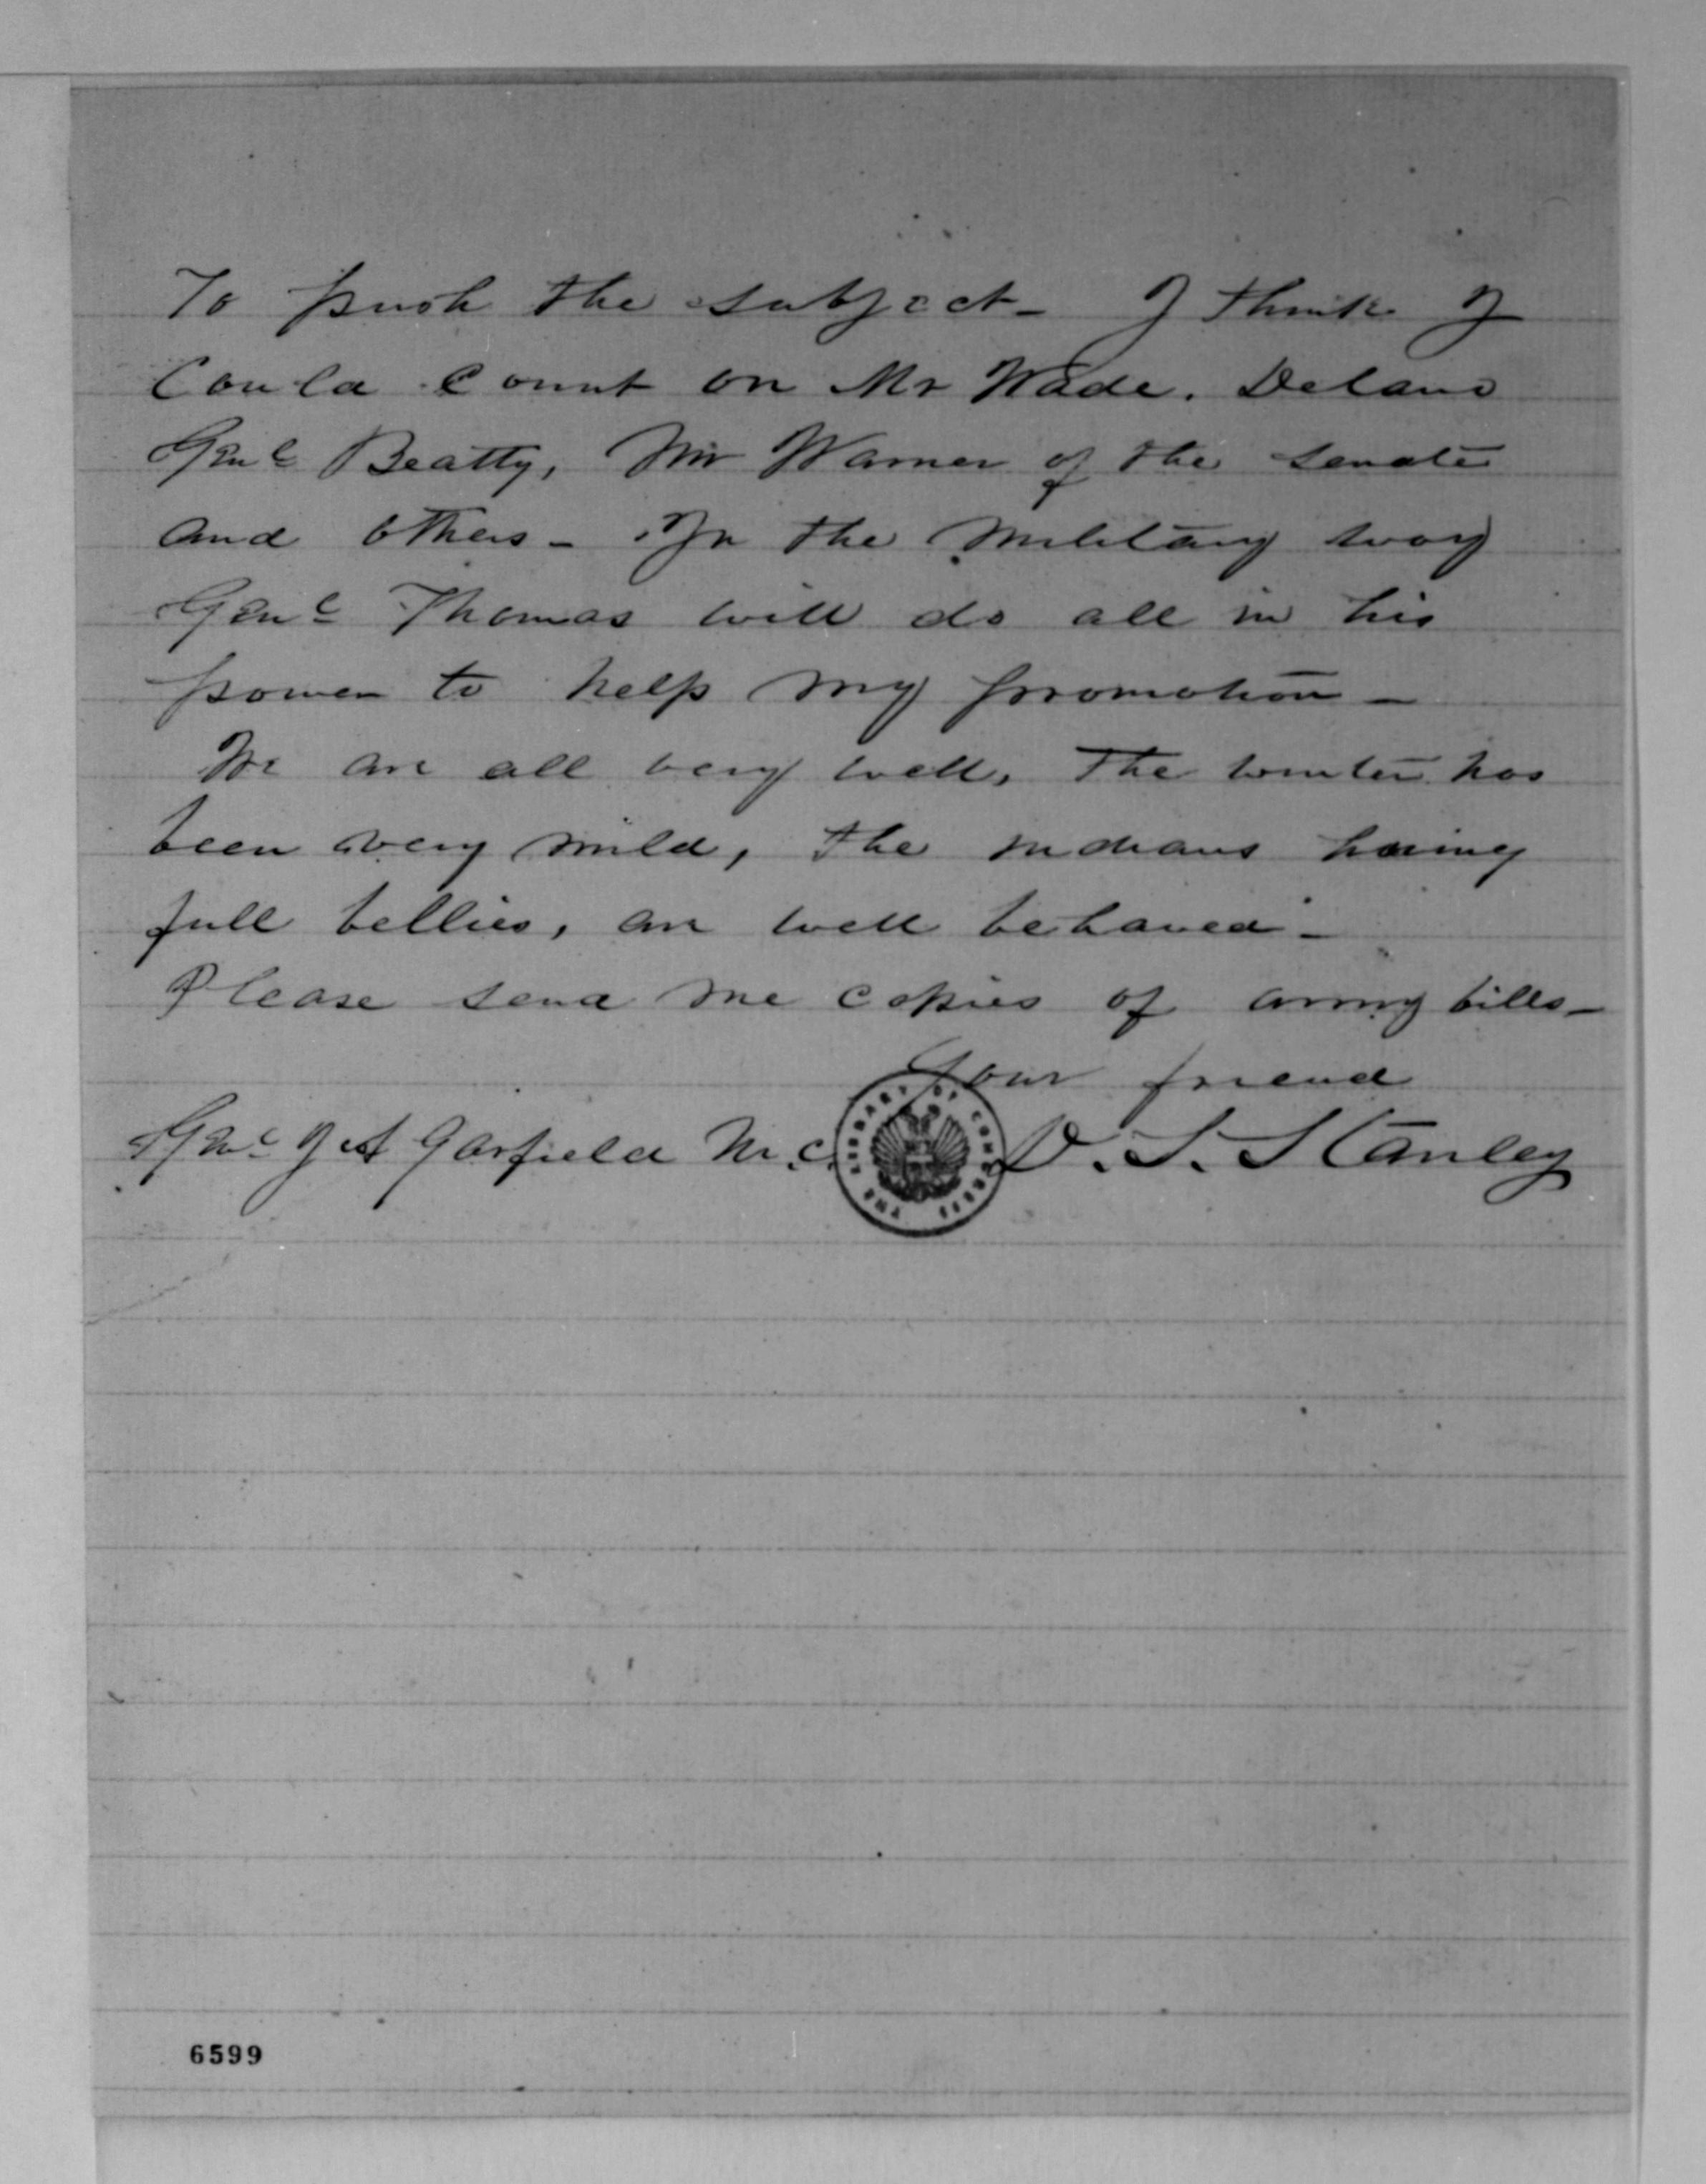 To push the subject— I think I
Could count on Mr Wade. Delano
Genl Beatty, Mr Warner of the Senate
and others— In the Military way
Genl Thomas will do all in his
power to help my promotion—
We are all very well, The winter has
been very mild, the indians having
full bellies, are well behaved—
Please send me copies of army bills—
Your friend
Genl J A Garfield M.C. D. S. Stanley
THE LIBRARY OF CONGRESS
6599